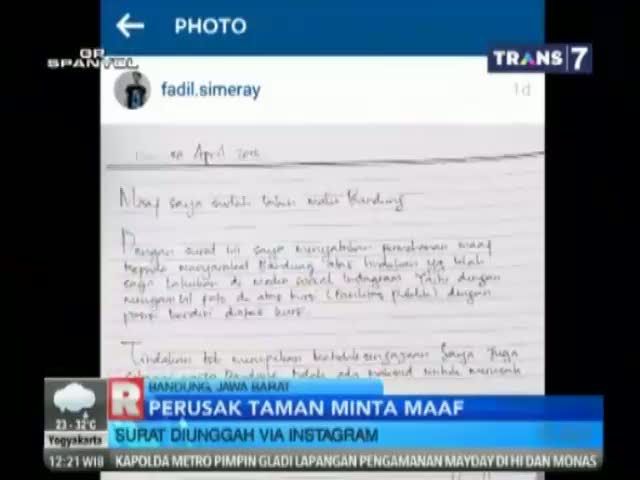 PHOTO
OP
SPANTEL
TRANS 7
fadil.simeray
1d
April
Maaf saya sudah Bandung
Dengan surat ini saya menyatakan permohonan maaf
kepada masyarakat Bandung atas tindakan yg telah
saya lakukan di media sosial Instagram yaitu dengan
mengambil foto di atas kursi (fasilitas publik) dengan
posisi berdiri diatas kursi.
Tindakan tsb merupakan ketidaksengajaan saya juga
tidak ada maksud untuk merusak
BANDUNG, JAWA BARAT
R PERUSAK TAMAN MINTA MAAF
23 - 32°C
SURAT DIUNGGAH VIA INSTAGRAM
Yogyakarta
12:21 WIB KAPOLDA METRO PIMPIN GLADI LAPANGAN PENGAMANAN MAYDAY DI HI DAN MONAS